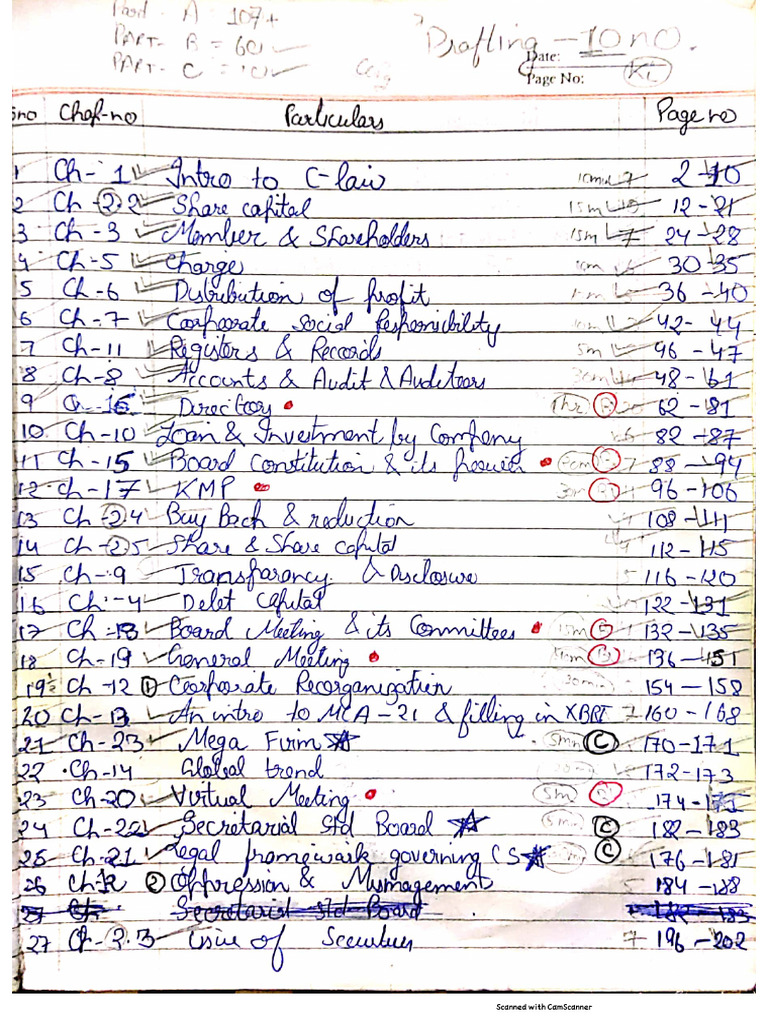 Part - A = 107+
PART- B = 60
PART- C = 10
Drafting - 10 no.
Date:
Page No:
Sno Chap-no Particulars Page no
1 Ch- 1 Intro to C-law 10min 7 2-10
2 Ch-2.2 Share capital 15m 12-21
3 Ch-3 Member & Shareholders 15m 7 24-28
4 Ch-5 Charge 30-35
5 Ch-6 Distribution of profit 36-40
6 Ch-7 Corporate Social Responsibility 42-44
7 Ch-11 Registers & Records 5m 46-47
8 Ch-8 Accounts & Audit & Auditors 48-61
9 Ch-16 Directors 1hr B 62-81
10 Ch-10 Loan & Investment by Company 82-87
11 Ch-15 Board Constitution & its power 88-94
12 Ch-17 KMP 96-106
13 Ch-2.4 Buy Back & reduction 108-111
14 Ch-2.5 Share & Share capital 112-115
15 Ch-9 Transparancy & Disclosure 116-120
16 Ch-4 Debt capital 122-131
17 Ch-18 Board Meeting & its Committees B 132-135
18 Ch-19 General Meeting B 136-151
19 Ch-12 ① Corporate Reorganization 30min 154-158
20 Ch-13 An intro to MCA-21 & filling in XBRL 7 160-168
21 Ch-23 Mega Firm 5min C 170-171
22 Ch-14 Global trend 172-173
23 Ch-20 Virtual Meeting 5m B 174-175
24 Ch-22 Secretarial Std Board 5m C 182-183
25 Ch-21 Legal framework governing CS C 176-181
26 Ch-12 ② Oppression & Mismanagement 184-188
Secretarial Std Board 182-183
27 Ch-2.3 issue of Securities 7 196-202
Scanned with CamScanner